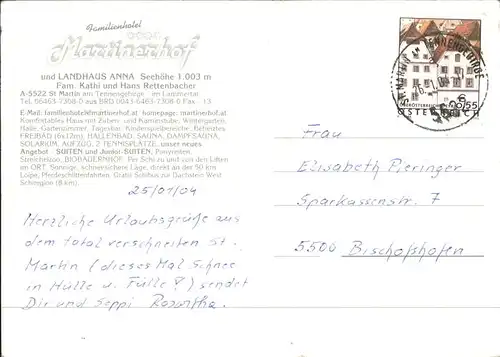 Familienhotel
Martinerhof
und LANDHAUS ANNA Seehöhe 1.003 m
Fam. Kathi und Hans Rettenbacher
A-5522 St Martin am Tennengebirge im Lammertal
Tel. 06463-7308-0 aus BRD 0043-6463-7308-0 Fax 13
E-Mail: familienhotel@martinerhof.at homepage: martinerhof.at
Komfortables Haus mit Zirben- und Kaminstube, Wintergarten,
Halle, Gartenzimmer, Tagesbar, Kinderspielbereiche, Beheiztes
FREIBAD (6x12m), HALLENBAD, SAUNA, DAMPFSAUNA,
SOLARIUM, AUFZUG, 2 TENNISPLÄTZE, unser neues
Angebot - SUITEN und Junior-SUITEN, Panoramen,
BIOBADERNHOF. Per Schi zu und von den Liften
im ORT. Sonnige, schneesichere Lage, direkt an der 50 km
Loipe, Pferdeschlittenfahrten, Gratis Schibus zur Dachstein West
Schiregion (8 km).
25/01/04
Herzliche Urlaubsgrüße aus
dem total verschneiten St.
Martin (dieses Mal Schnee
in Hülle u. Fülle!) sendet
Dir und Seppi Roswitha.
ST. MARTIN AM TENNENGEBIRGE
€0,55
ÖSTERREICH
Frau
Elisabeth Pieringer
Sparkassenstr. 7
5500 Bischofshofen